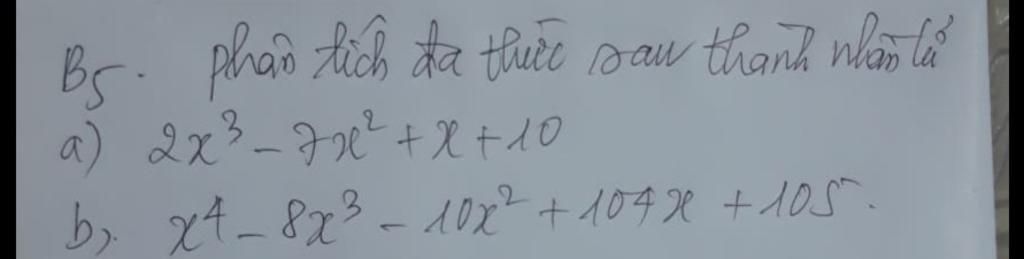 B5. phân tích đa thức sau thành nhân tử
a) 2x³ - 7x² + x + 10
b). x⁴ - 8x³ - 10x² + 104x + 105.